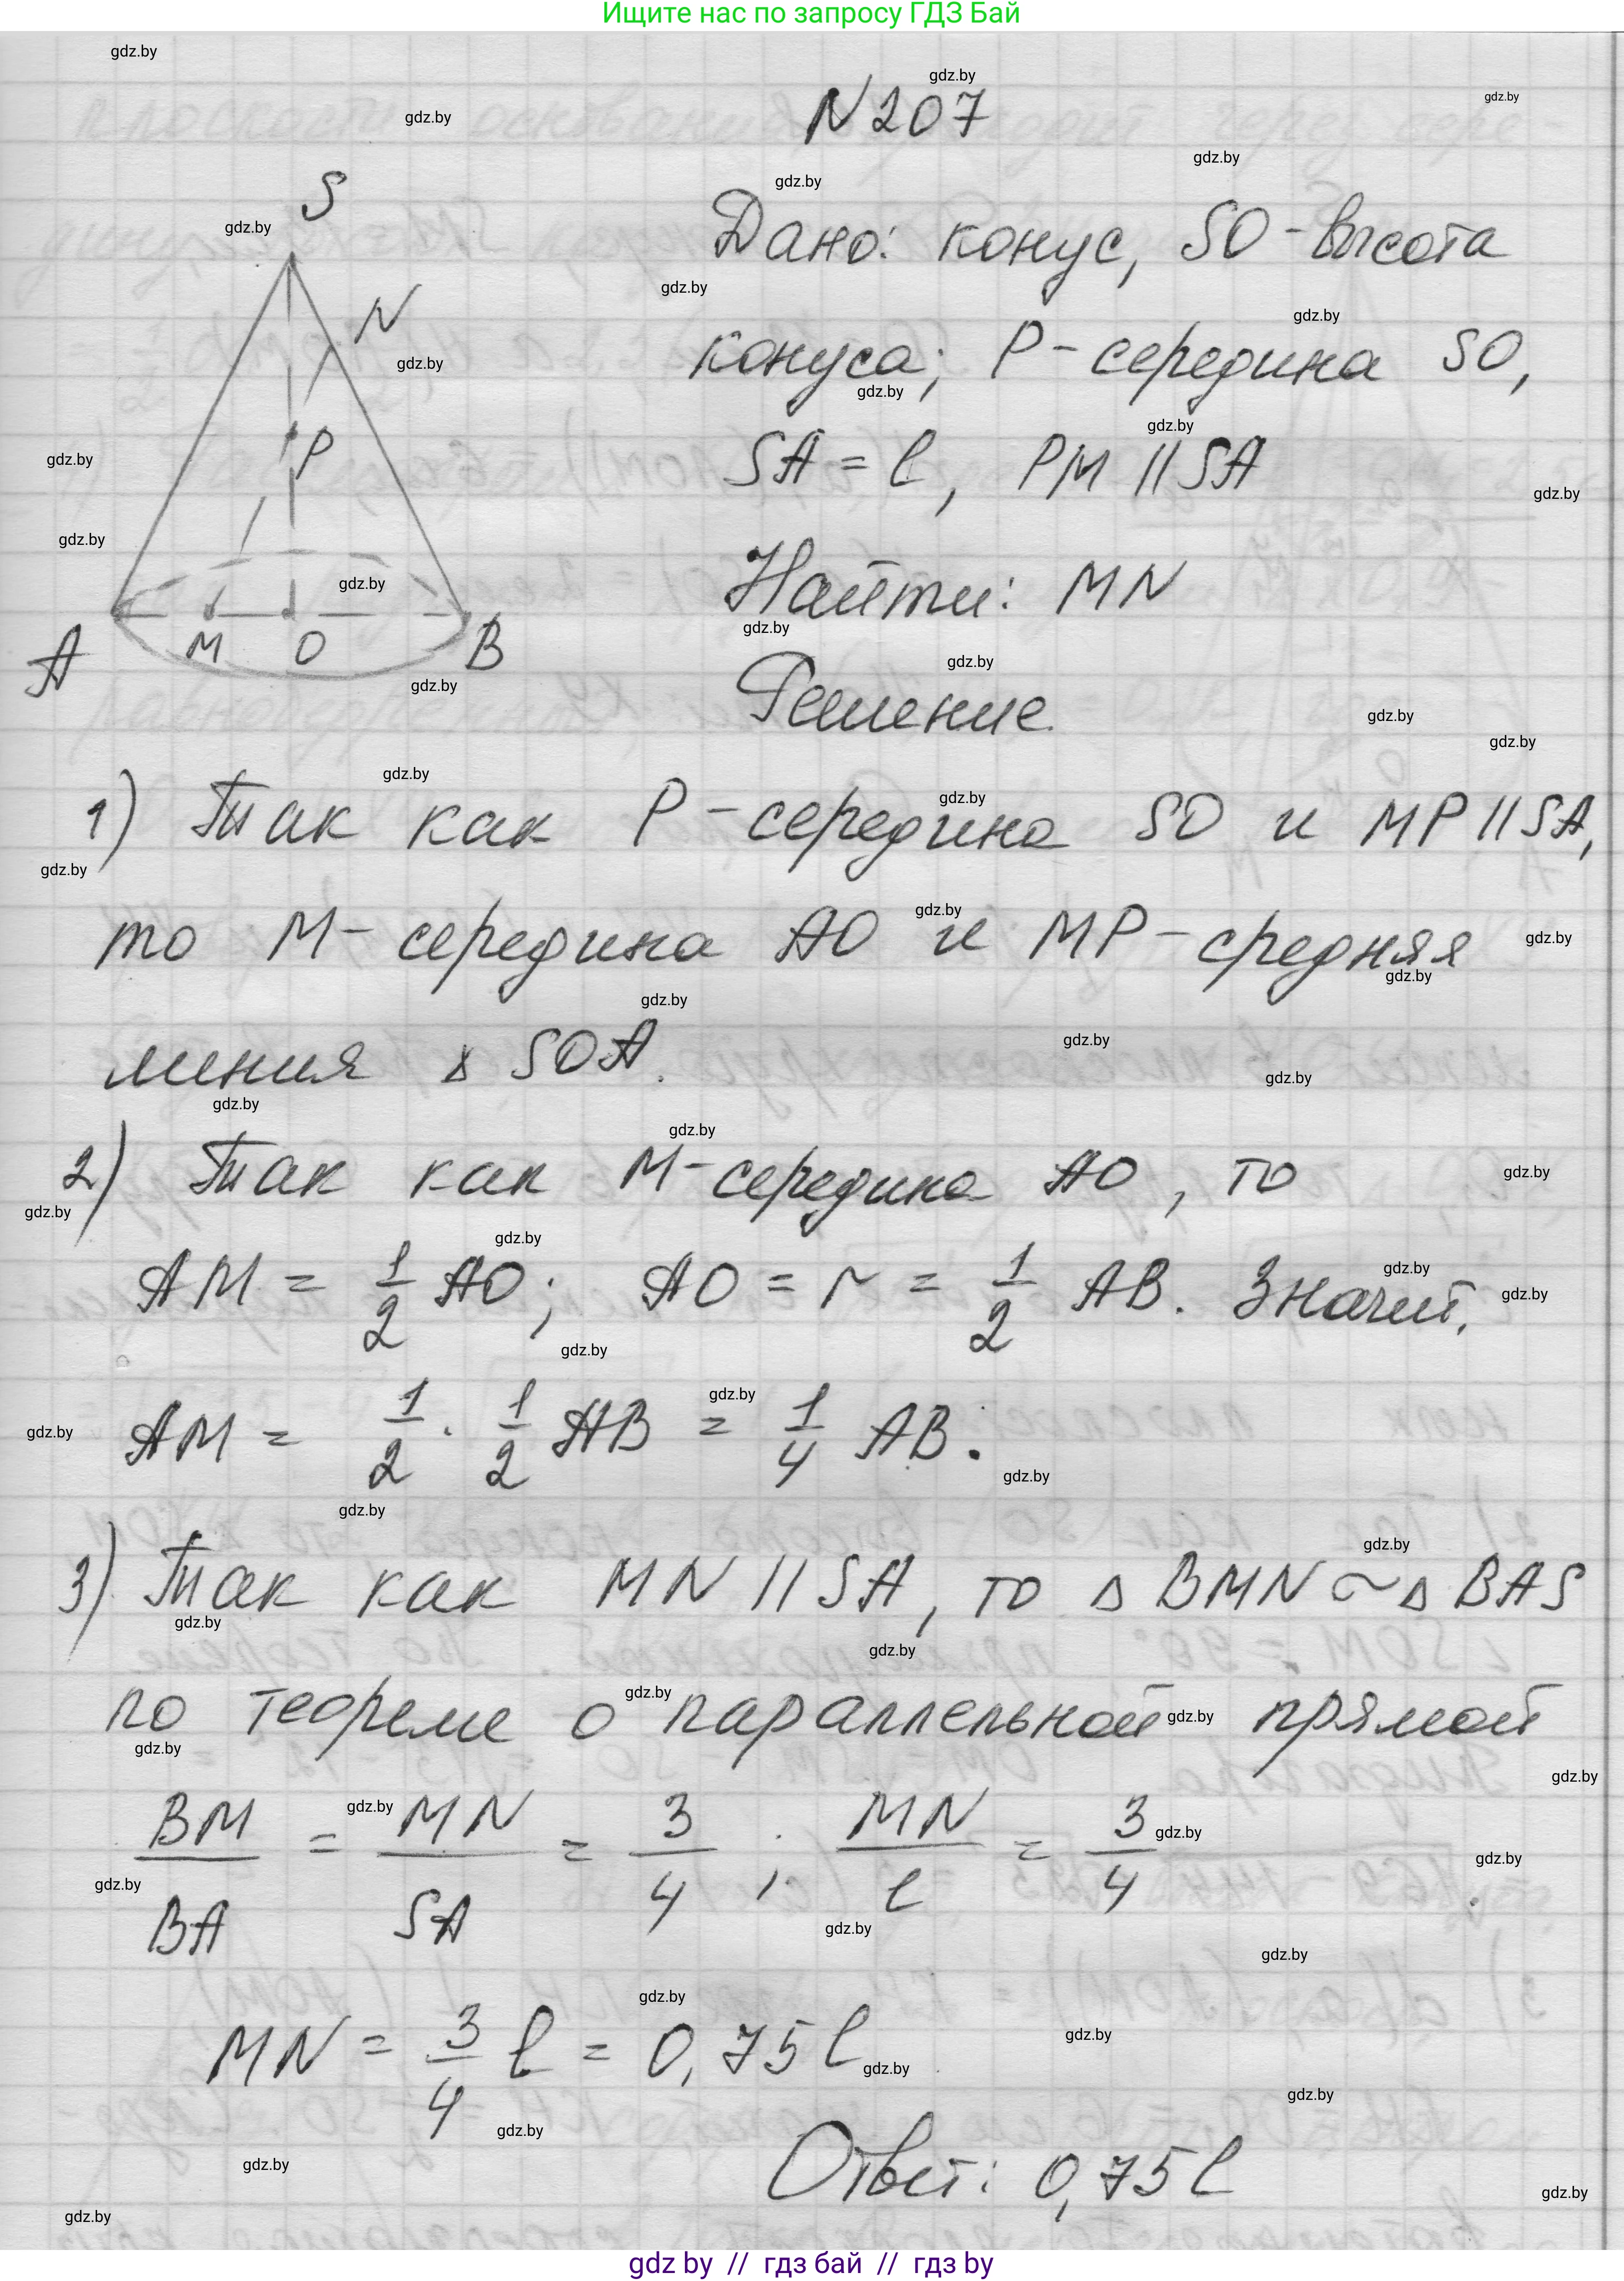 Ищите нас по запросу ГДЗ Бай
N 207
Дано: конус, SO - высота
конуса; P - середина SO,
SA = l, PM || SA
Найти: MN
Решение.
S
N
P
A
M
O
B
1) Так как P - середина SO и MP || SA,
то M - середина AO и MP - средняя
линия Δ SOA.
2) Так как M - середина AO, то
AM = 1/2 AO; AO = r = 1/2 AB. Значит,
AM = 1/2 · 1/2 AB = 1/4 AB.
3) Так как MN || SA, то Δ BMN ~ Δ BAS
по теореме о параллельной прямой
BM/BA = MN/SA = 3/4; MN/l = 3/4
MN = 3/4 l = 0,75 l
Ответ: 0,75 l
gdz.by
gdz by // гдз бай // гдз by